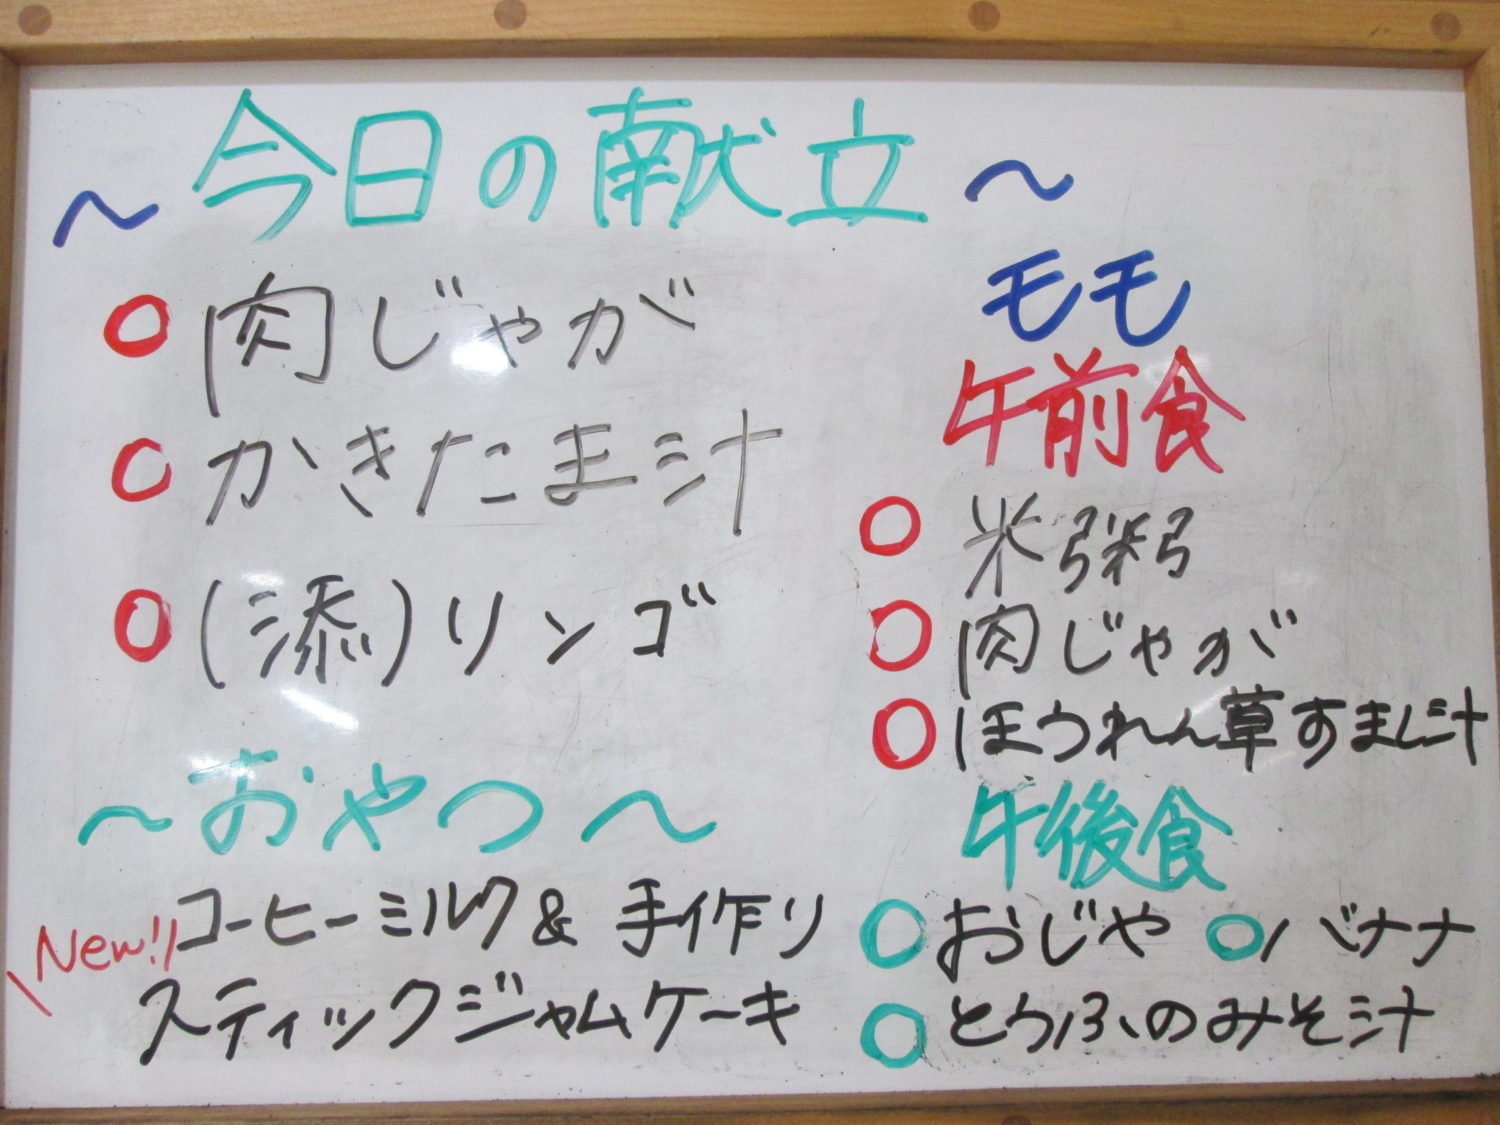 ～今日の献立～
○肉じゃが
○かきたま汁
○(添)リンゴ
～おやつ～
New!!コーヒーミルク&手作り
スティックジャムケーキ
モモ
午前食
○米粥
○肉じゃが
○ほうれん草すまし汁
午後食
○おじや ○バナナ
○とうふのみそ汁